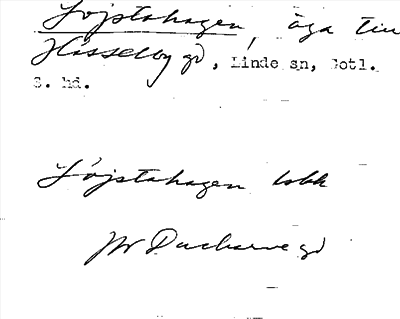 Löjstahagen, äga till
Hässelby gd, Linde sn, Gotl.
S. hd.
Löjstahagen lokk
Ducharve gd